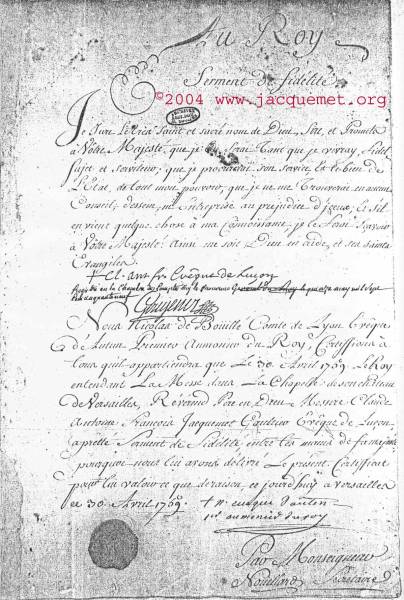 Au Roy
Serment de fidelité
©2004 www.jacquemet.org
Je Jure le très Saint et sacré nom de Dieu, Sire, et Promets
à Vôtre Majesté, que je Serai tant que je vivray, fidel
sujet et serviteur, que je procurerai son service et le bien de
l'Etat, de tout mon pouvoir, que je ne me trouverai en aucun
Conseil, dessein, ni Entreprise au prejudice d'iceux, et s'il
en vient quelque chose à ma connoissance, je le ferai Sçavoir
à Vôtre Majesté. Ainsi me soit Dieu en aide, et ses saints
Evangiles
+ Cl. ant. fr. Evêque de Luçon
Nous Nicolas de Bouillé Comte de Lyon Evêque
d'Autun Premier Aumonier du Roy, Certiffions à
tous qu'il appartiendra que le 30 Avril 1759. Le Roy
entendant La Messe dans La Chapelle de son château
de Versailles, Réverend Pere en Dieu Messire Claude
Antoine François Jacquemet Gaultier Evêque de Luçon,
a prêté Serment de Fidelité entre les mains de sa majesté
pourquoi nous lui avons délivré Le présent Certiffiat
pour lui valoir ce que de raison, ce jourd'huy à versailles
ce 30 Avril 1759. + N. evesque d'autun
pr. aumonier du roy
Par Monseigneur
Secretaire